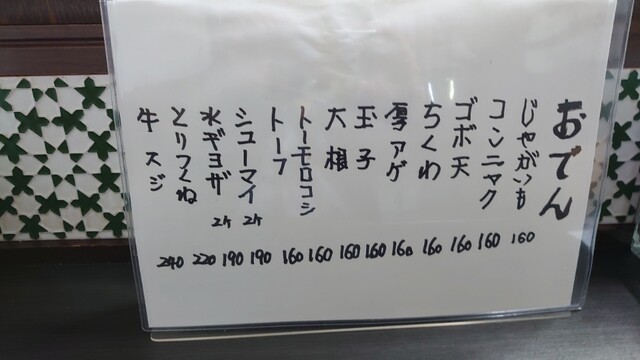 おでん
じゃがいも 160
コンニャク 160
ゴボ天 160
ちくわ 160
厚アゲ 160
玉子 160
大根 160
トーモロコシ 160
トーフ 160
シューマイ 2ヶ 190
水ギョザ 2ヶ 190
とりつくね 220
牛スジ 240